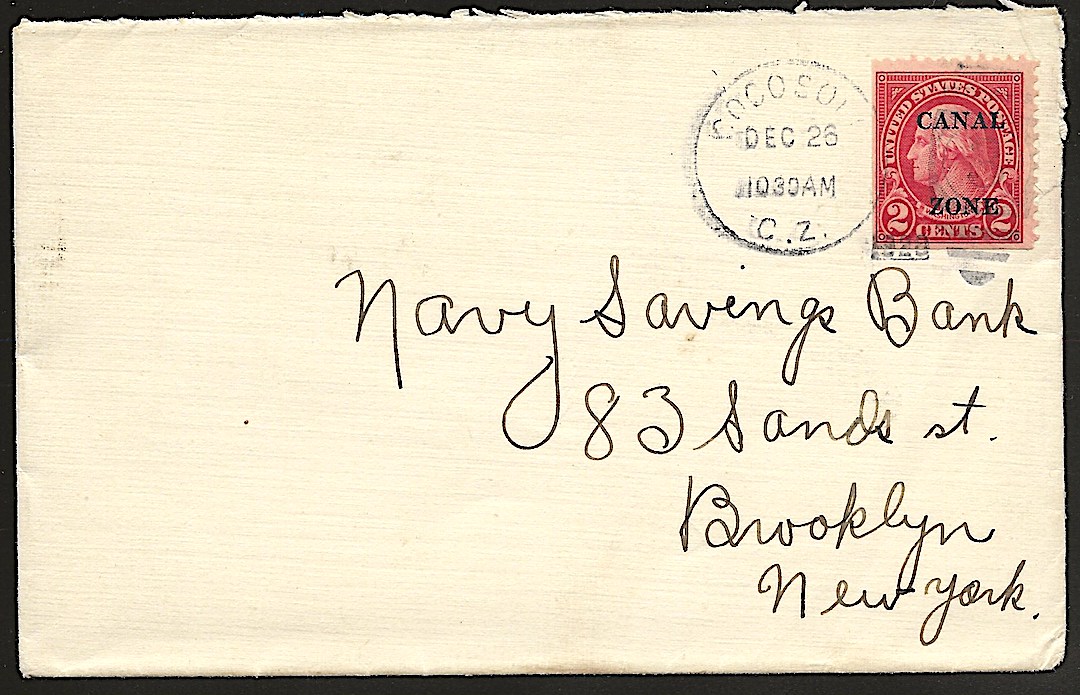 COCO SOLO
DEC 26
1030AM
C.Z.
UNITED STATES POSTAGE
CANAL
ZONE
WASHINGTON
2 CENTS 2
Navy Savings Bank
83 Sands st.
Brooklyn
New York.